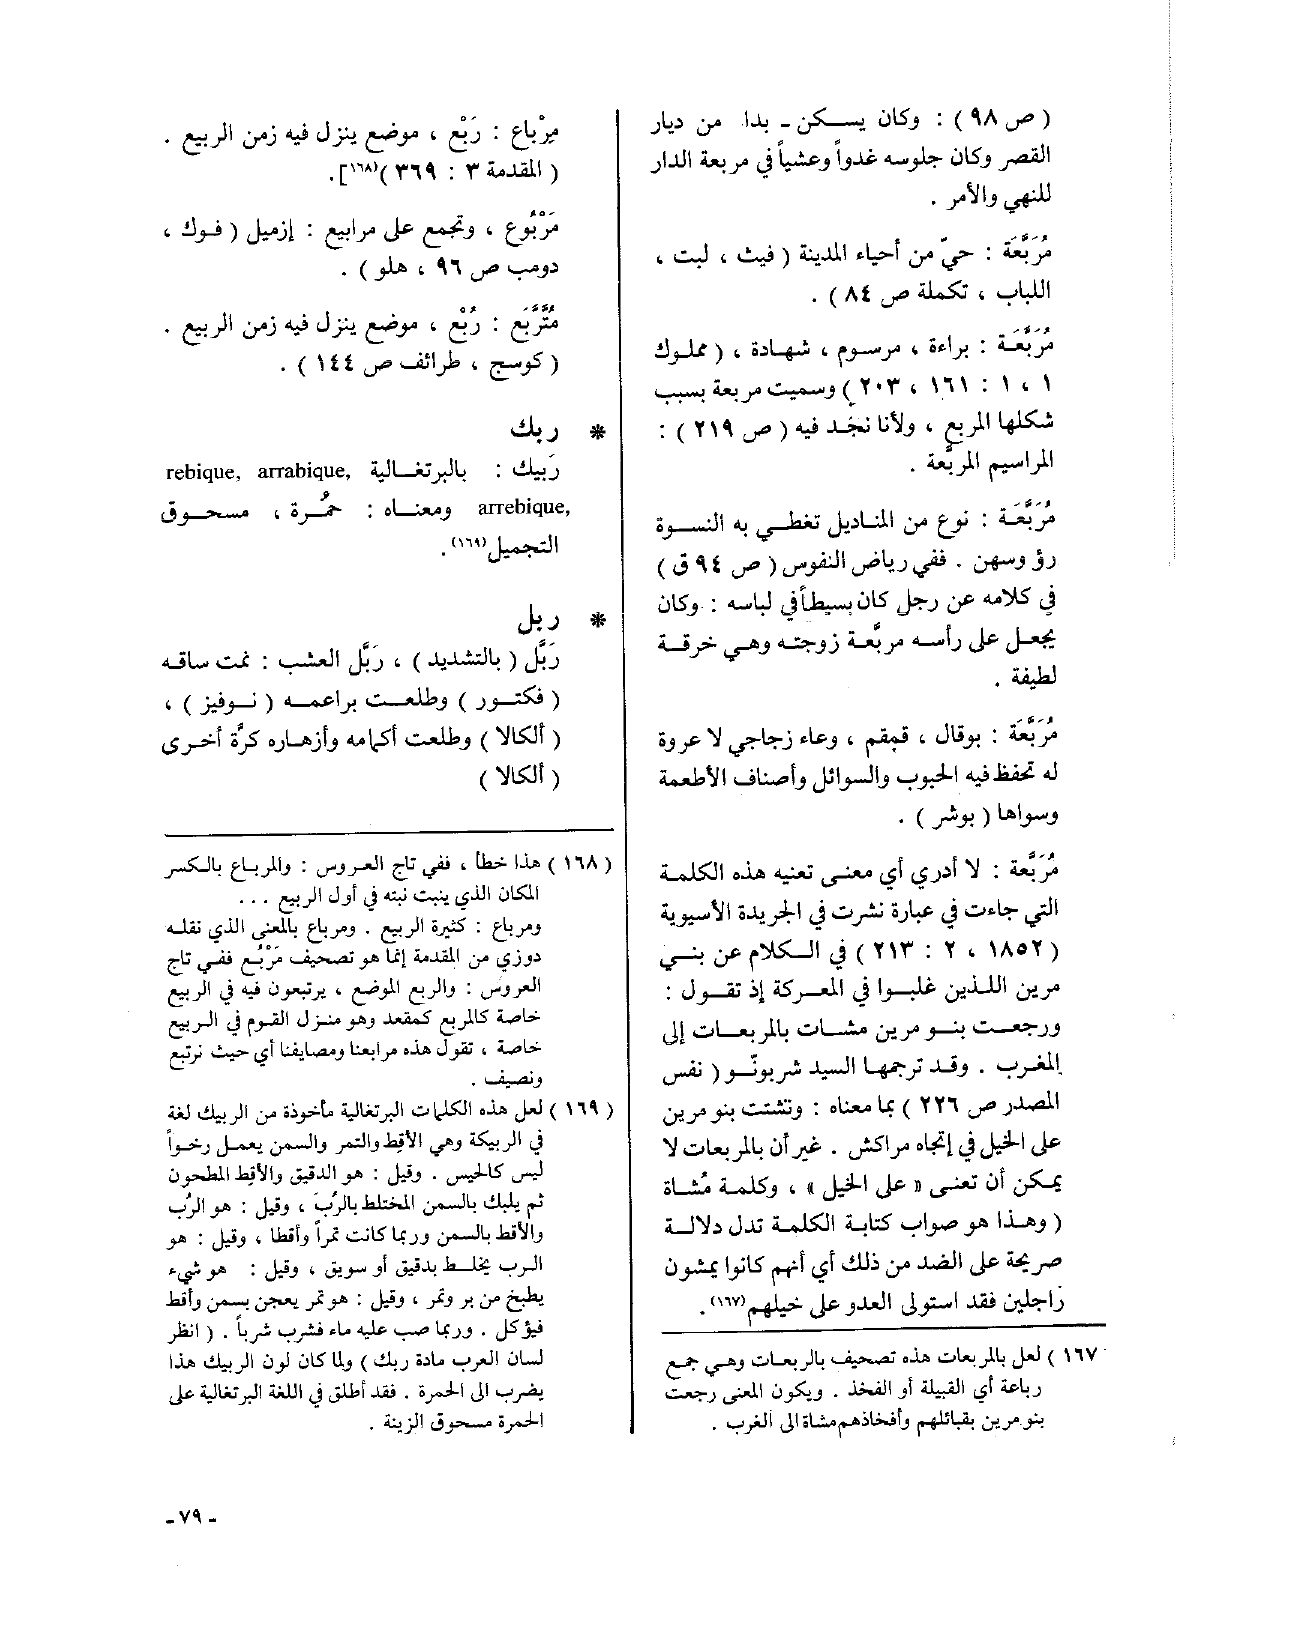 ( ص ٩٨ ) : وكان يسكن ـ بدا من ديار
القصر وكان جلوسه غدواً وعشياً في مربعة الدار
للنهي والأمر .
مُرَبَّعَة : حيّ من أحياء المدينة ( فيث ، لبت ،
اللباب ، تكملة ص ٨٤ ) .
مُرَبَّعَة : براءة ، مرسوم ، شهادة ، ( مملوك
١ ، ١ : ١٦١ ، ٢٠٣ ) وسميت مربعة بسبب
شكلها المربع ، ولأنا نجد فيه ( ص ٢١٩ ) :
المراسيم المربَّعة .
مُرَبَّعَة : نوع من المناديل تغطي به النسوة
رؤوسهن . ففي رياض النفوس ( ص ٩٤ ق )
في كلامه عن رجل كان بسيطاً في لباسه : وكان
يجعل على رأسه مربَّعة زوجته وهي خرقة
لطيفة .
مُرَبَّعَة : بوقال ، قمقم ، وعاء زجاجي لا عروة
له تحفظ فيه الحبوب والسوائل وأصناف الأطعمة
وسواها ( بوشر ) .
مُرَبَّعَة : لا أدري أي معنى تعنيه هذه الكلمة
التي جاءت في عبارة نشرت في الجريدة الأسيوية
( ١٨٥٢ ، ٢ : ٢١٣ ) في الكلام عن بني
مرين اللذين غلبوا في المعركة إذ تقول :
ورجعت بنو مرين مشات بالمربعات إلى
المغرب . وقد ترجمها السيد شربونّو ( نفس
المصدر ص ٢٢٦ ) بما معناه : وتشتت بنو مرين
على الخيل في إتجاه مراكش . غير أن بالمربعات لا
يمكن أن تعنى « على الخيل » ، وكلمة مُشاة
( وهذا هو صواب كتابة الكلمة تدل دلالة
صريحة على الضد من ذلك أي أنهم كانوا يمشون
راجلين فقد استولى العدو على خيلهم(١٦٧).
١٦٧ ) لعل بالمربعات هذه تصحيف بالربعات وهي جمع
رباعة أي القبيلة أو الفخذ . ويكون المعنى رجعت
بنو مرين بقبائلهم وأفخاذهم مشاة الى الغرب .
مِرْباع : رَبْع ، موضع ينزل فيه زمن الربيع .
( المقدمة ٣ : ٣٦٩ )(١٦٨)].
مَرْبُوع ، وتجمع على مرابيع : إزميل ( فوك ،
دومب ص ٩٦ ، هلو ) .
مُتَرَبَّع : رَبْع ، موضع ينزل فيه زمن الربيع .
( كوسج ، طرائف ص ١٤٤ ) .
* ربك
رَبيك : بالبرتغالية rebique, arrabique,
arrebique, ومعناه : حُمرة ، مسحوق
التجميل(١٦٩).
* ربل
رَبَّل ( بالتشديد ) ، رَبَّل العشب : نمت ساقه
( فكتور ) وطلعت براعمه ( نوفيز ) ،
( ألكالا ) وطلعت أكمامه وأزهاره كرَّة أخرى
( ألكالا )
( ١٦٨ ) هذا خطأ ، ففي تاج العروس : والمرباع بالكسر
المكان الذي ينبت نبته في أول الربيع ...
ومرباع : كثيرة الربيع . ومرباع بالمعنى الذي نقله
دوزي من المقدمة إنما هو تصحيف مَرْبَع ففي تاج
العروس : والربع الموضع ، يرتبعون فيه في الربيع
خاصة كالمربع كمقعد وهو منزل القوم في الربيع
خاصة ، تقول هذه مرابعنا ومصايفنا أي حيث نرتبع
ونصيف .
( ١٦٩ ) لعل هذه الكلمات البرتغالية مأخوذة من الربيك لغة
في الربيكة وهي الأقط والتمر والسمن يعمل رخواً
ليس كالحيس . وقيل : هو الدقيق والأقط المطحون
ثم يلبك بالسمن المختلط بالرُب ، وقيل : هو الرُب
والأقط بالسمن وربما كانت تمراً وأقطا ، وقيل : هو
الرب يخلط بدقيق أو سويق ، وقيل : هو شيء
يطبخ من بر وتمر ، وقيل : هو تمر يعجن بسمن وأقط
فيؤكل . وربما صب عليه ماء فشرب شرباً . ( انظر
لسان العرب مادة ربك ) ولما كان لون الربيك هذا
يضرب الى الحمرة . فقد أطلق في اللغة البرتغالية على
الحمرة مسحوق الزينة .
ـ ٧٩ ـ